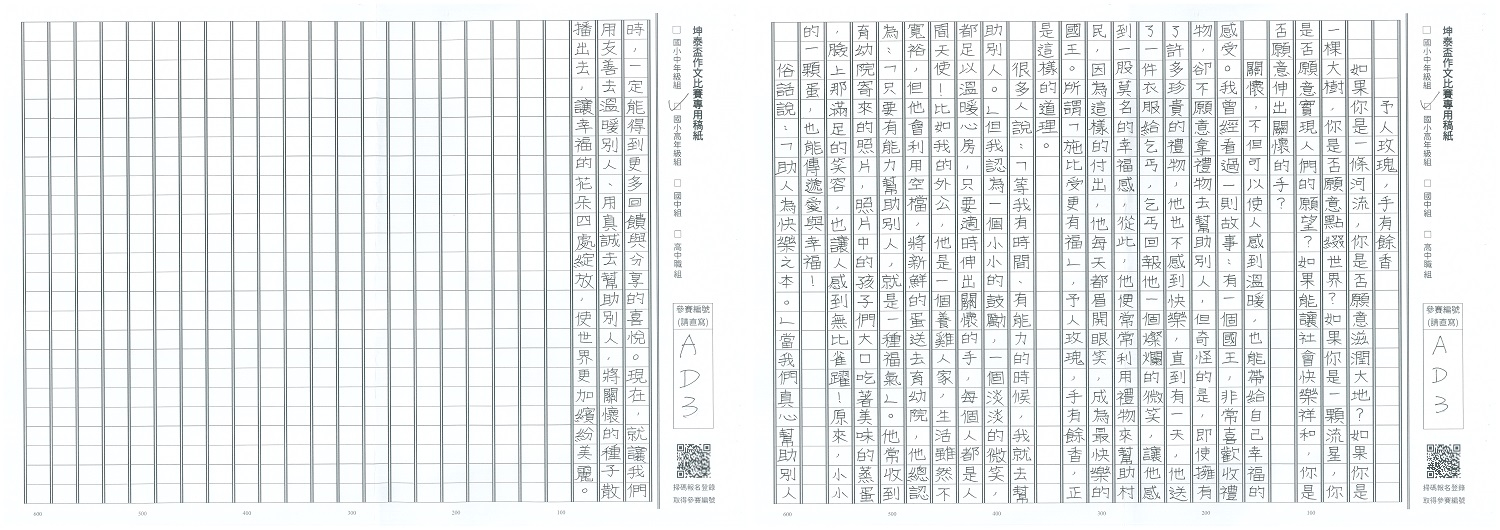 坤泰盃作文比賽專用稿紙
□ 國小中年級組 ☑ 國小高年級組 □ 國中組 □ 高中職組
參賽編號
(請直寫)
A
D
3
掃碼報名登錄
取得參賽編號
予人玫瑰，手有餘香
如果你是一條河流，你是否願意滋潤大地？如果你是
一棵大樹，你是否願意點綴世界？如果你是一顆流星，你
是否願意實現人們的願望？如果能讓社會快樂祥和，你是
否願意伸出關懷的手？
關懷，不但可以使人感到溫暖，也能帶給自己幸福的
感受。我曾經看過一則故事：有一個國王，非常喜歡收禮
物，卻不願意拿禮物去幫助別人，但奇怪的是，即使擁有
了許多珍貴的禮物，他也不感到快樂，直到有一天，他送
了一件衣服給乞丐，乞丐回報他一個燦爛的微笑，讓他感
到一股莫名的幸福感，從此，他便常常利用禮物來幫助村
民，因為這樣的付出，他每天都眉開眼笑，成為最快樂的
國王。所謂「施比受更有福」，予人玫瑰，手有餘香，正
是這樣的道理。
很多人說：「等我有時間、有能力的時候，我就去幫
助別人。」但我認為一個小小的鼓勵，一個淡淡的微笑，
都足以溫暖心房，只要適時伸出關懷的手，每個人都是人
間天使！比如我的外公，他是一個養雞人家，生活雖然不
寬裕，但他會利用空檔，將新鮮的蛋送去育幼院，他總認
為：「只要有能力幫助別人，就是一種福氣」。他常收到
育幼院寄來的照片，照片中的孩子們大口吃著美味的蒸蛋
，臉上那滿足的笑容，也讓人感到無比雀躍！原來，小小
的一顆蛋，也能傳遞愛與幸福！
俗話說：「助人為快樂之本。」當我們真心幫助別人
100
200
300
400
500
600
坤泰盃作文比賽專用稿紙
□ 國小中年級組 ☑ 國小高年級組 □ 國中組 □ 高中職組
參賽編號
(請直寫)
A
D
3
掃碼報名登錄
取得參賽編號
時，一定能得到更多回饋與分享的喜悅。現在，就讓我們
用友善去溫暖別人、用真誠去幫助別人，將關懷的種子散
播出去，讓幸福的花朵四處綻放，使世界更加繽紛美麗。
100
200
300
400
500
600